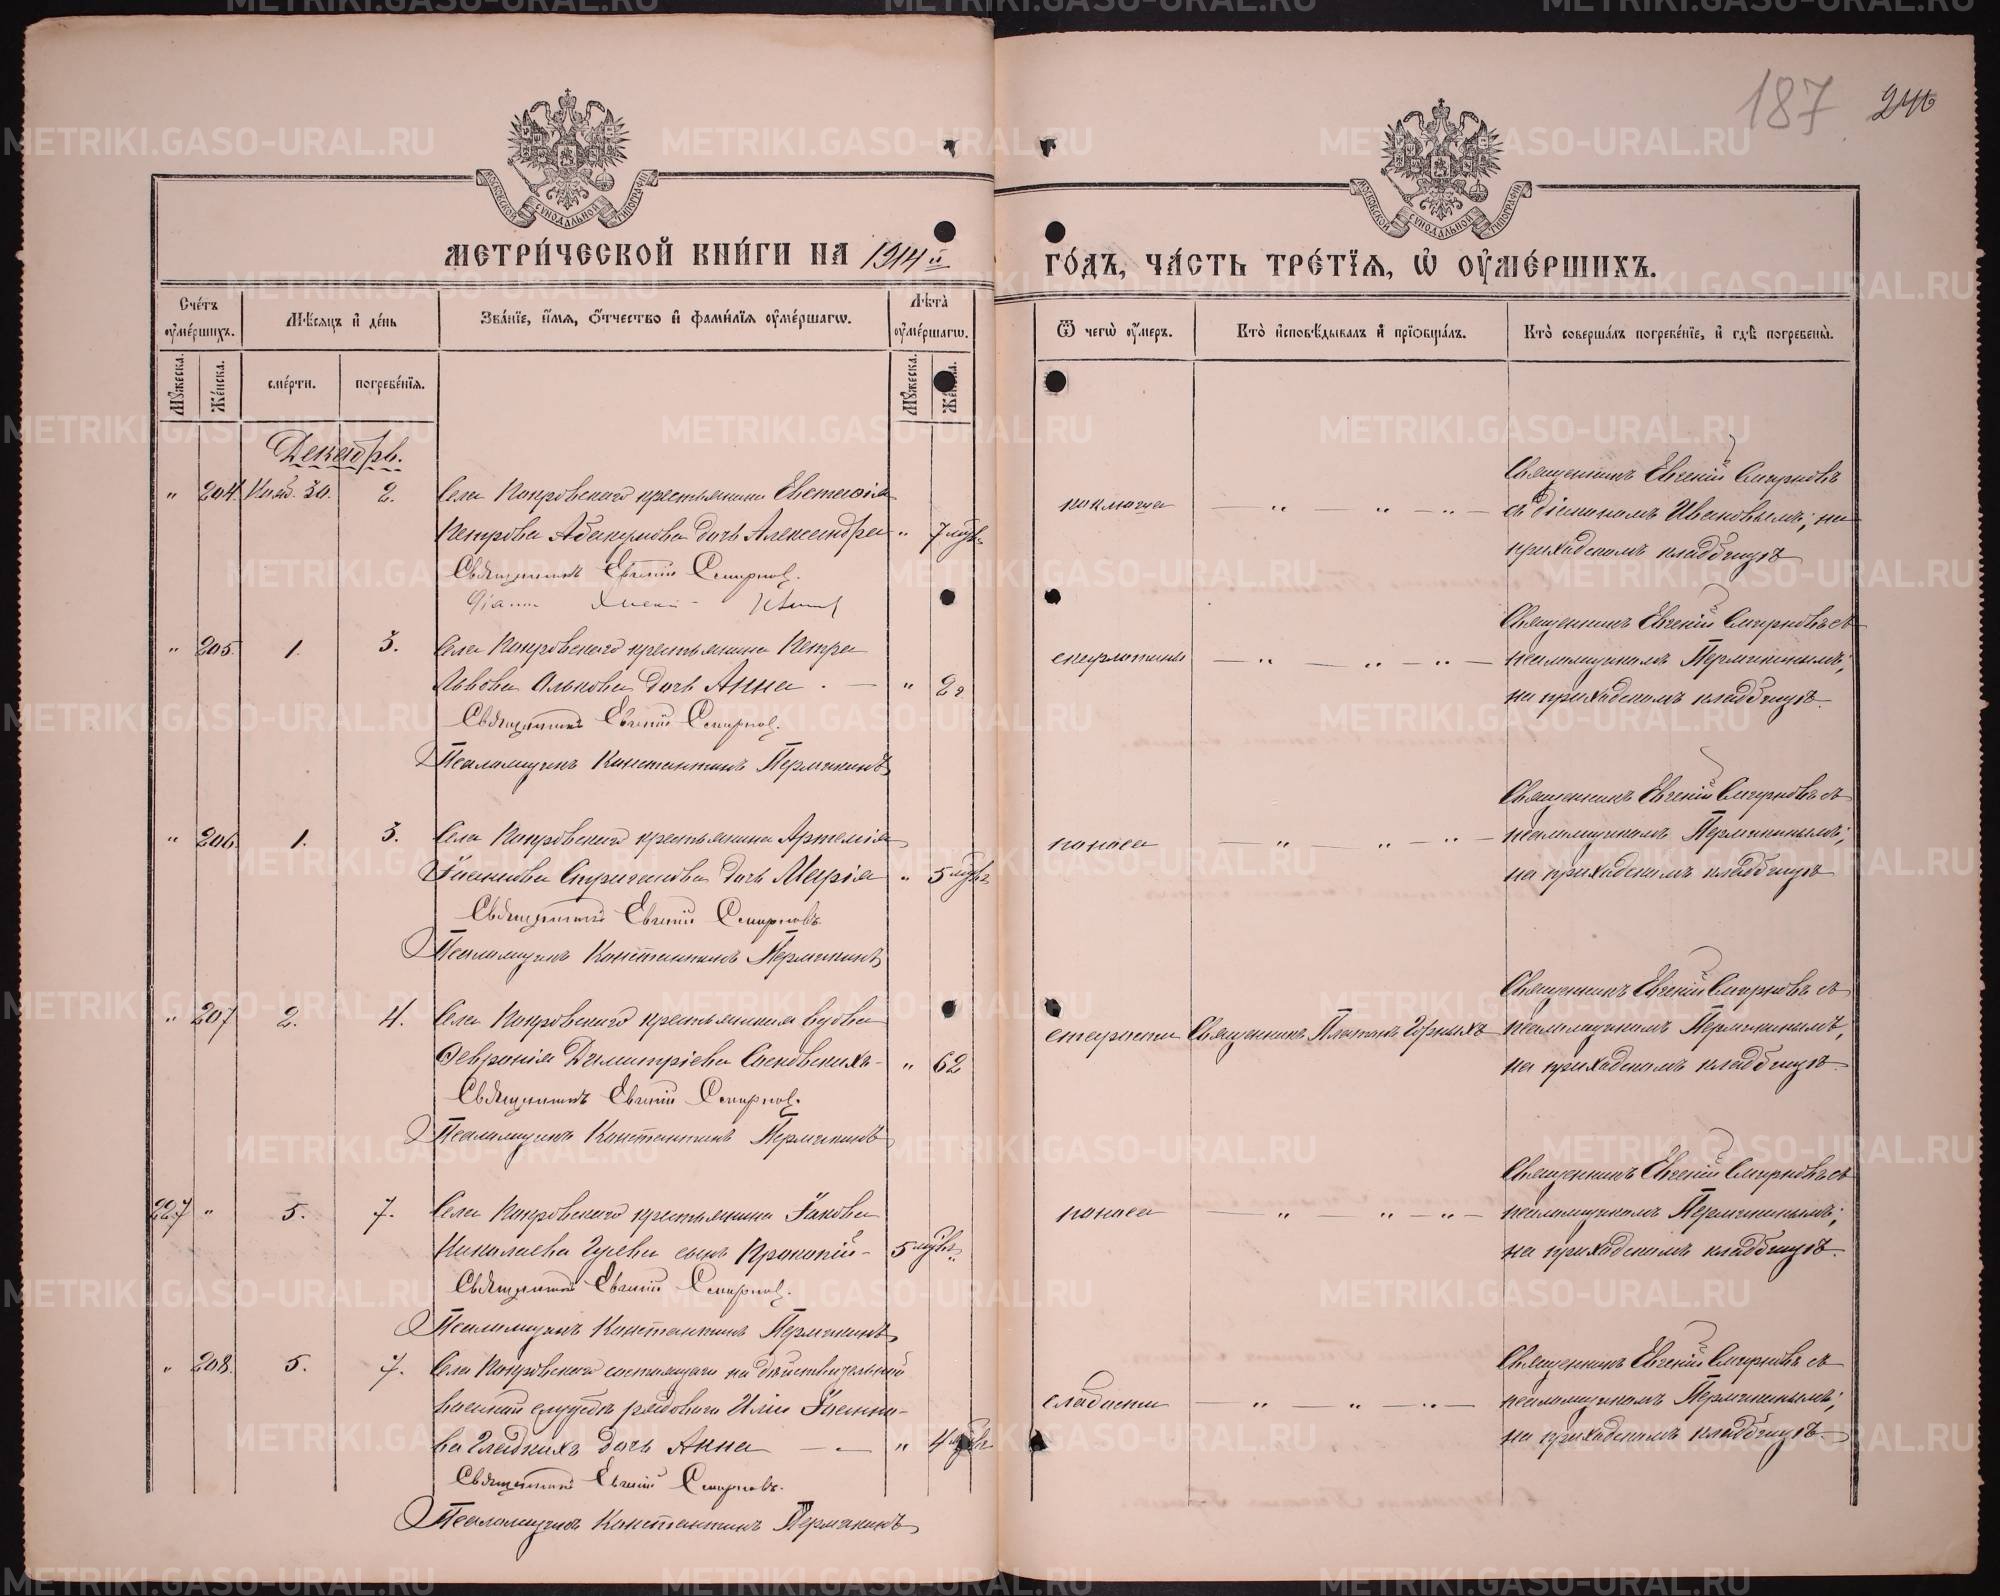 187 240
МЕТРИ́ЧЕСКОЙ КНИ́ГИ НА 1914й ГО́ДЪ, ЧА́СТЬ ТРЕ́ТІѦ, Ѽ ОУ҆МЕ́РШИХЪ.
Сче́тъ оу҆ме́ршихъ.
Мѣ́сѧцъ и҆ де́нь
Зва́нїе, и҆́мѧ, ѻ҆́тчество и҆ фами́лїѧ оу҆ме́ршагѡ.
Лѣ́та оу҆ме́ршагѡ.
Ѿ чегѡ̀ оу҆́меръ.
Кто̀ и҆сповѣ́дывалъ и҆ прїѻбща́лъ.
Кто̀ соверша́лъ погребе́нїе, и҆ гдѣ̀ погребены̀.
Мꙋ́жеска. Же́нска. сме́рти. погребе́нїѧ. Мꙋ́жеска. Же́нска.
Декабрь.
" 204. Нояб. 30. 2. Села Покровскаго крестьянина Евстафія
Петрова Абакумова дочь Александра " 7 мѣс.
Священникъ Евгеній Смирновъ.
коклюша
Священникъ Евгеній Смирновъ
съ діакономъ Ивановымъ; на
приходскомъ кладбищѣ
" 205. 1. 3. Села Покровскаго крестьянина Петра
Львова дочь Анна " 2 г.
Священникъ Евгеній Смирнов.
Псаломщикъ Константинъ Пермякинъ
скарлатины
Священникъ Евгеній Смирновъ съ
псаломщикомъ Пермякинымъ;
на приходскомъ кладбищѣ.
" 206. 1. 3. Села Покровскаго крестьянина Артемія
Іоаннова Стриганова дочь Марія " 5 мѣс.
Священникъ Евгеній Смирновъ.
Псаломщикъ Константинъ Пермякинъ
поноса
Священникъ Евгеній Смирновъ съ
псаломщикомъ Пермякинымъ;
на приходскомъ кладбищѣ
" 207 2. 4. Села Покровскаго крестьянская вдова
Февронія Димитріева Сосновскихъ " 62
Священникъ Евгеній Смирнов.
Псаломщикъ Константинъ Пермякинъ
старости Священникъ Платонъ Горныхъ
Священникъ Евгеній Смирновъ съ
псаломщикомъ Пермякинымъ;
на приходскомъ кладбищѣ.
227 " 5. 7. Села Покровскаго крестьянина Іакова
Николаева Гусева сынъ Прокопій 5 мѣс. "
Священникъ Евгеній Смирнов.
Псаломщикъ Константинъ Пермякинъ
поноса
Священникъ Евгеній Смирновъ съ
псаломщикомъ Пермякинымъ;
на приходскомъ кладбищѣ.
" 208. 5. 7. Села Покровскаго состоящаго на дѣйствительной
военной службѣ рядового Иліи Іоанно-
ва Гладкихъ дочь Анна " 4 мѣс.
Священникъ Евгеній Смирновъ.
Псаломщикъ Константинъ Пермякинъ
слабости
Священникъ Евгеній Смирновъ съ
псаломщикомъ Пермякинымъ;
на приходскомъ кладбищѣ.
METRIKI.GASO-URAL.RU